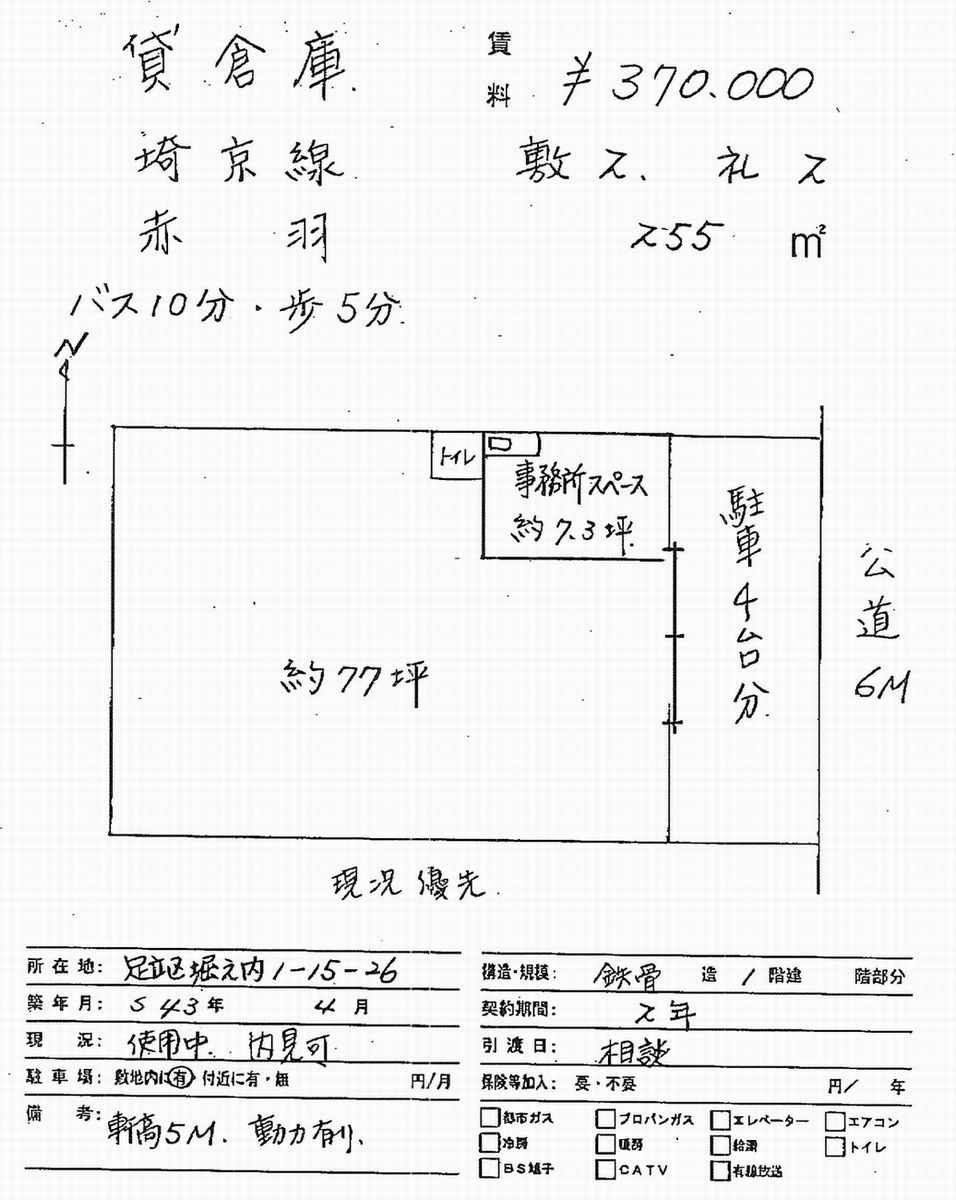 貸倉庫
賃料 ¥370.000
埼京線
敷2. 礼2
赤羽
255 m²
バス10分・歩5分
N
トイレ
事務所スペース
約7.3坪
駐車4台分
公道
6M
約77坪
現況優先
所在地: 足立区堀之内1-15-26
築年月: S43年 4月
現況: 使用中. 内見可
駐車場: 敷地内に有・付近に有・無 円/月
備考: 軒高5M. 動力有り.
構造・規模: 鉄骨 造 1階建 階部分
契約期間: 2年
引渡日: 相談
保険等加入: 要・不要 円/ 年
都市ガス プロパンガス エレベーター エアコン
冷房 暖房 給湯 トイレ
BS端子 CATV 有線放送